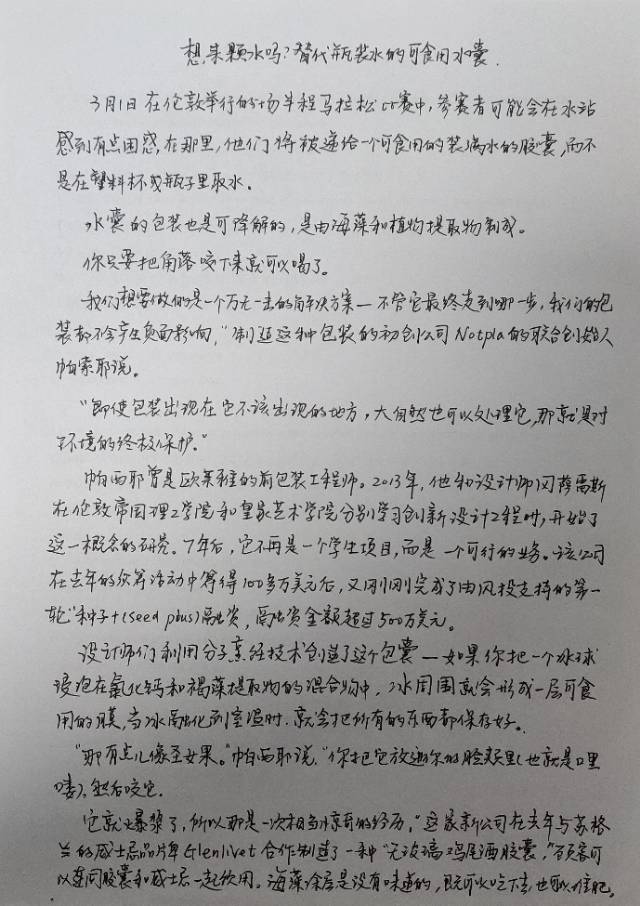 想来颗水吗?替代瓶装水的可食用水囊.
3月1日在伦敦举行的一场半程马拉松比赛中,参赛者可能会在水站
感到有点困惑,在那里,他们将被递给一个可食用的装满水的胶囊,而不
是在塑料杯或瓶子里取水.
水囊的包装也是可降解的,是由海藻和植物提取物制成。
你只要把角落咬下来就可以喝了。
我们想要做的是一个万无一失的解决方案—不管它最终走到哪一步,我们的包
装都不会产生负面影响,"制造这种包装的初创公司Notpla的联合创始人
帕索耶说。
"即使包装出现在它不该出现的地方,大自然也可以处理它,那就是对
环境的终极保护."
帕西耶曾是欧莱雅的前包装工程师。2013年,他和设计师冈萨雷斯
在伦敦帝国理工学院和皇家艺术学院分别学习创新设计工程时,开始了
这一概念的研究。7年后,它不再是一个学生项目,而是一个可行的业务。该公司
在去年的众筹活动中筹得100多万美元后,又刚刚完成了由风投支持的第一
轮"种子+(seed plus)融资,融资金额超过500万美元。
设计师们利用分子烹饪技术创造了这个包囊—如果你把一个冰球
浸泡在氯化钙和褐藻提取物的混合物中,冰周围就会形成一层可食
用的膜,当冰融化到室温时.就会把所有的东西都保存好.
"那有点儿像圣女果。"帕西耶说."你把它放进你的脸颊里(也就是口里
),然后咬它.
它就爆浆了,所以那是一次相当惊奇的经历,"这家新公司在去年与苏格
兰的威士忌品牌Glenlivet合作制造了一种"无玻璃鸡尾酒胶囊,"顾客可
以连同胶囊和威士忌一起饮用。海藻涂层是没有味道的,既可以吃下去,也可以堆肥。